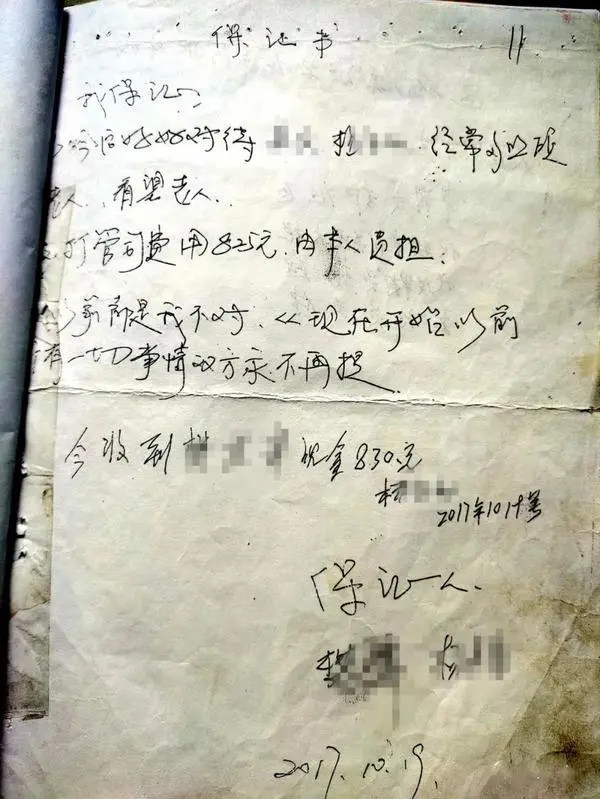 保证书 11
我保证:
今后好好对待 经常
老人、看望老人.
打官司费用825元.由本人负担.
以前都是我不对、从现在开始以前
有一切事情双方永不再提
今收到 现金830元
2017年10月19号
保证人.
2017.10.19.